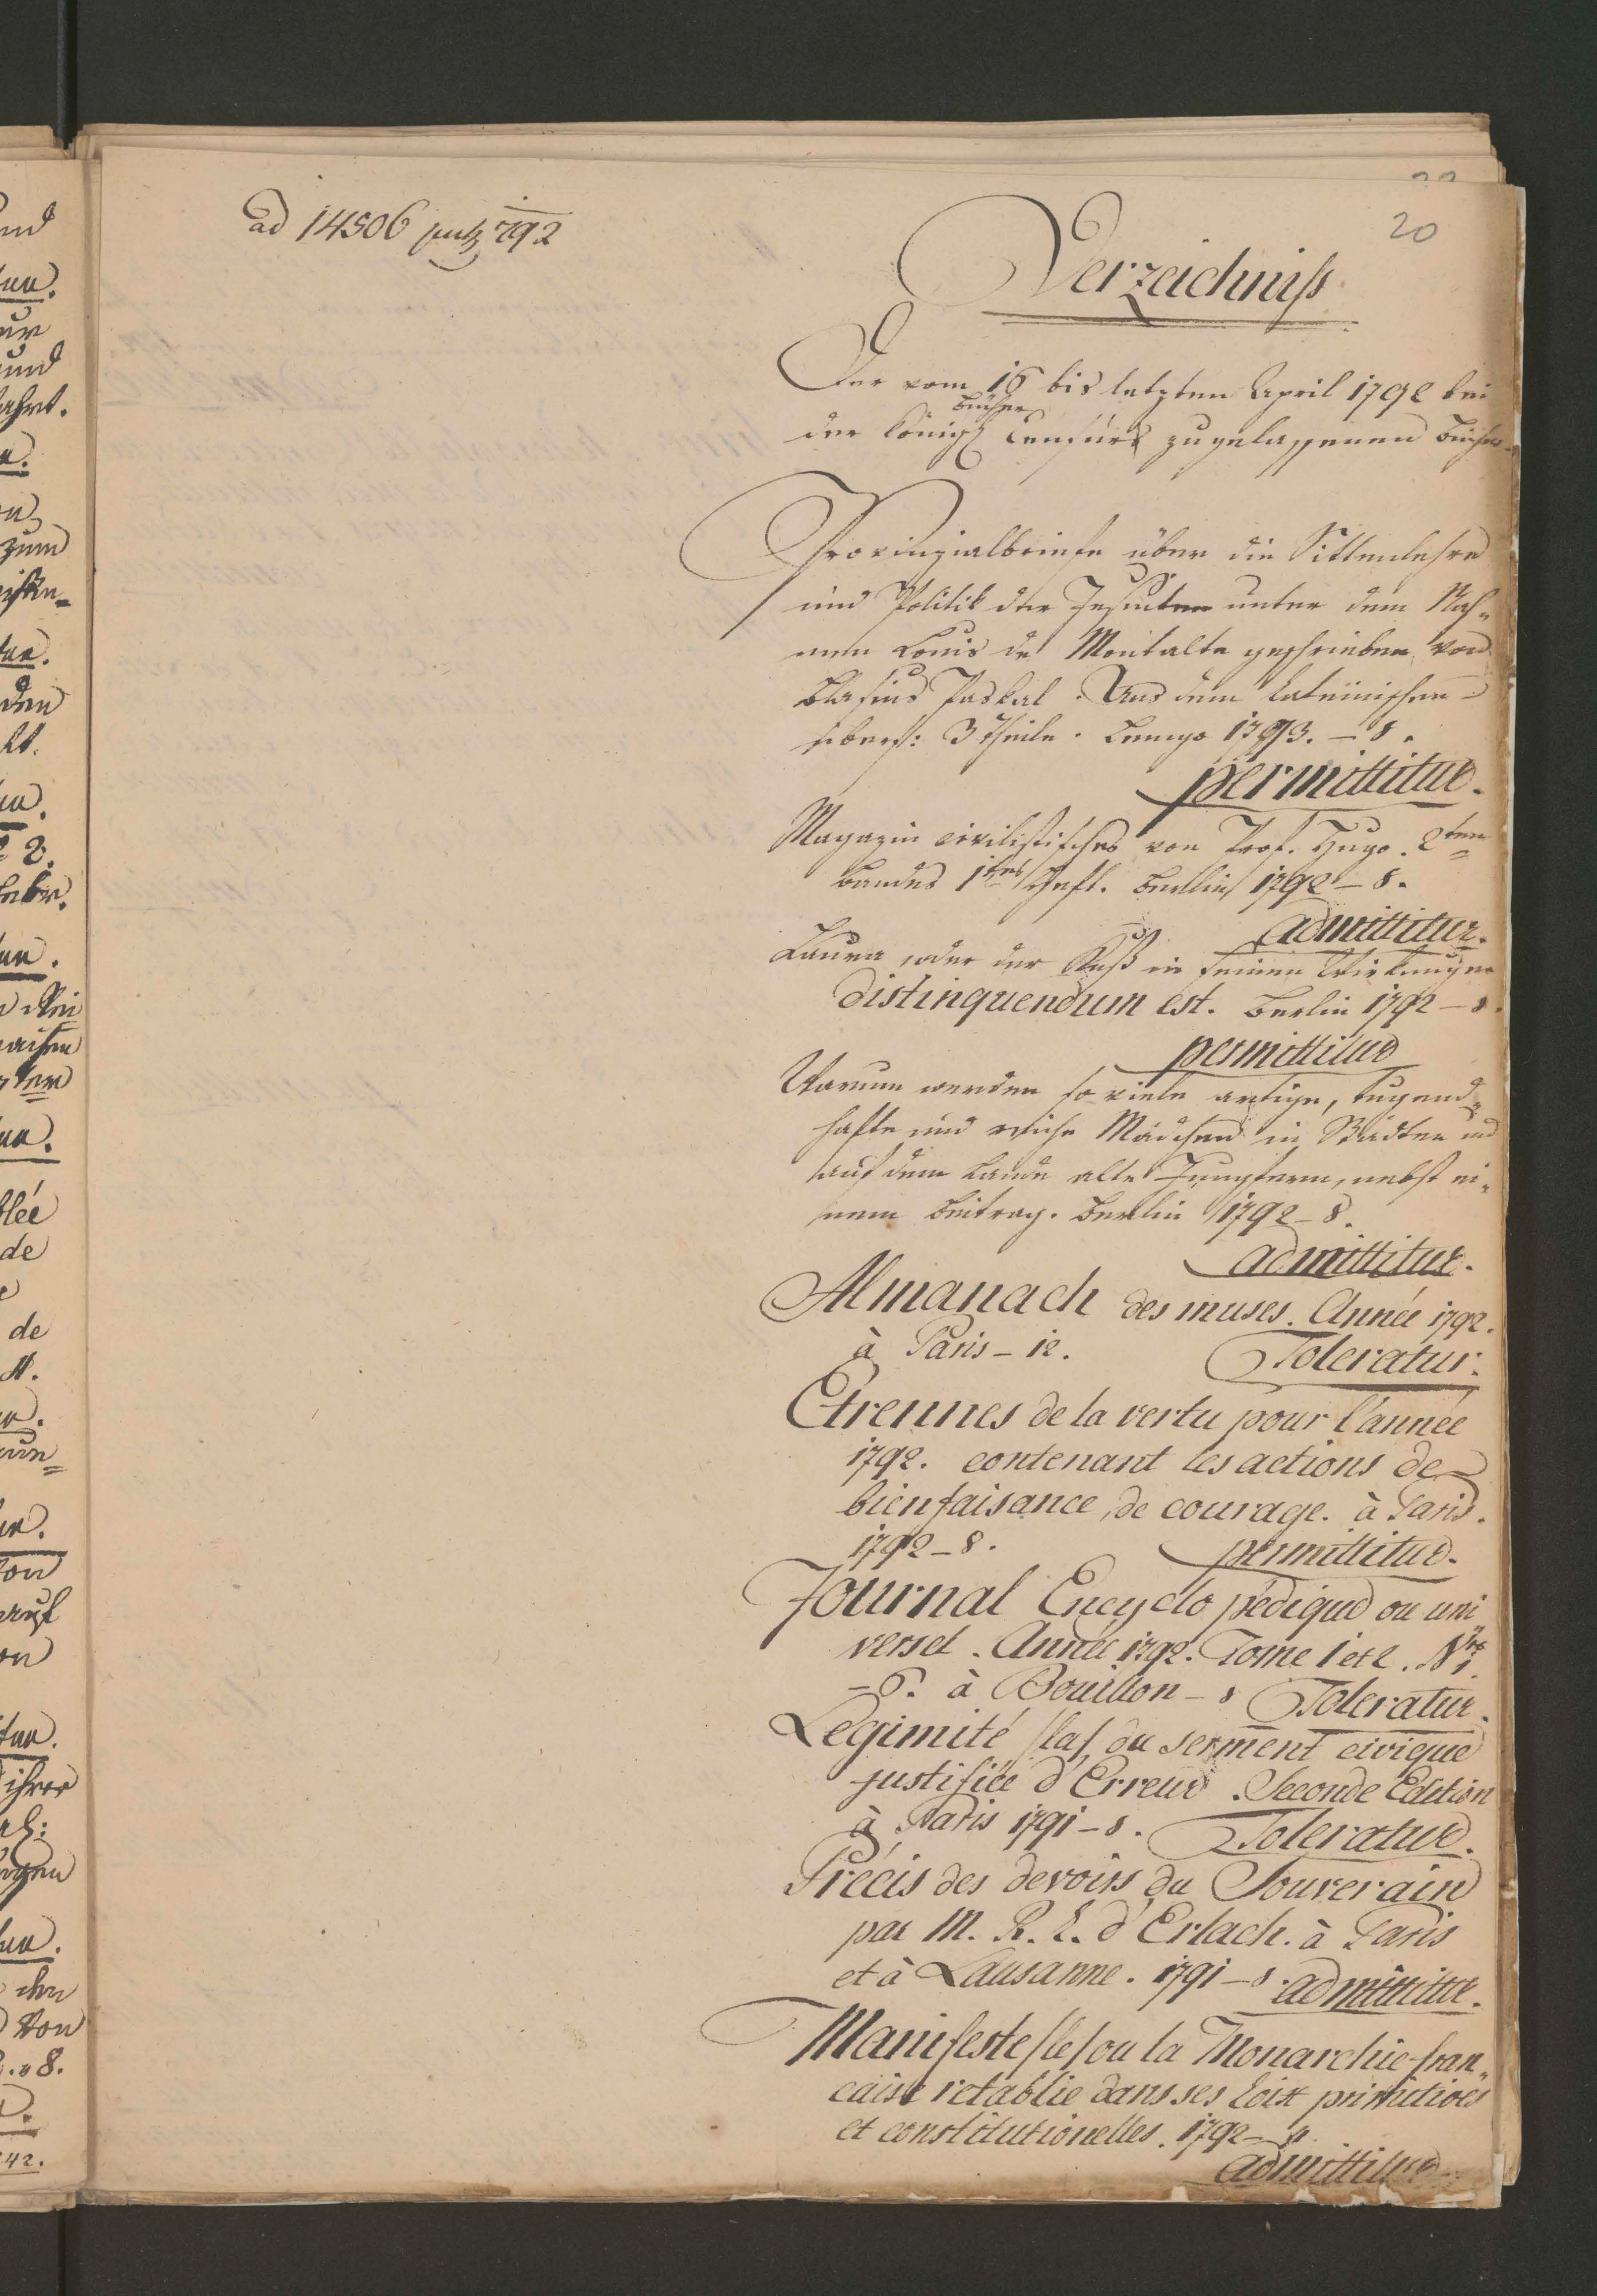 ad 14506 792
20
Verzeichniss
Der vom 16 bis letzten April 1792 bei
Bücher
der Königl Censurs zugelassenen Bücher
Provinzialbriefe über die Sittenlehre
und Politik der Jesuiten unter dem Nah-
men Louis de Montalte geschrieben von
Blasius Paskal. Aus dem Lateinischen
übers: 3 Theile. Lemgo 1793. – 8.
permittitur.
Magazin civilistisches von Prof. Hugo. 2ten
Bandes 1tes Heft. Berlin 1792 – 8.
admittitur.
Laura oder der Kuß in seinen Wirkungen
distinquendum est. Berlin 1792 – 8.
permittitur
Warum werden so viele artige, tugend-
hafte und reiche Mädchen in Städten und
auf dem Lande alte Jungfern, nebst ei-
nem Beitrag. Berlin 1792 – 8.
admittitur.
Almanach des muses. Année 1792.
à Paris – 12. Toleratur.
Etrennes de la vertu pour l'année
1792. contenant les actions de
bienfaisance, de courage. à Paris.
1792 – 8. permittitur.
Journal Encyclo pédique ou uni
versel. Année 1792. Tome 1 et 2. Nro 1.
– 6. à Bouillon – 8 Toleratur.
Légimité /la/ du serment civique
justifiée d'Erreur. Seconde Edition
à Paris 1791 – 8. Toleratur.
Précis des devoirs du Souverain
par M. R. L. d'Erlach. à Paris
et à Lausanne. 1791 – 8. admittitur.
Manifeste /le/ ou la Monarchie fran-
caise retablie dans ses loix primitives
et constitutionelles. 1792 –
admittitur